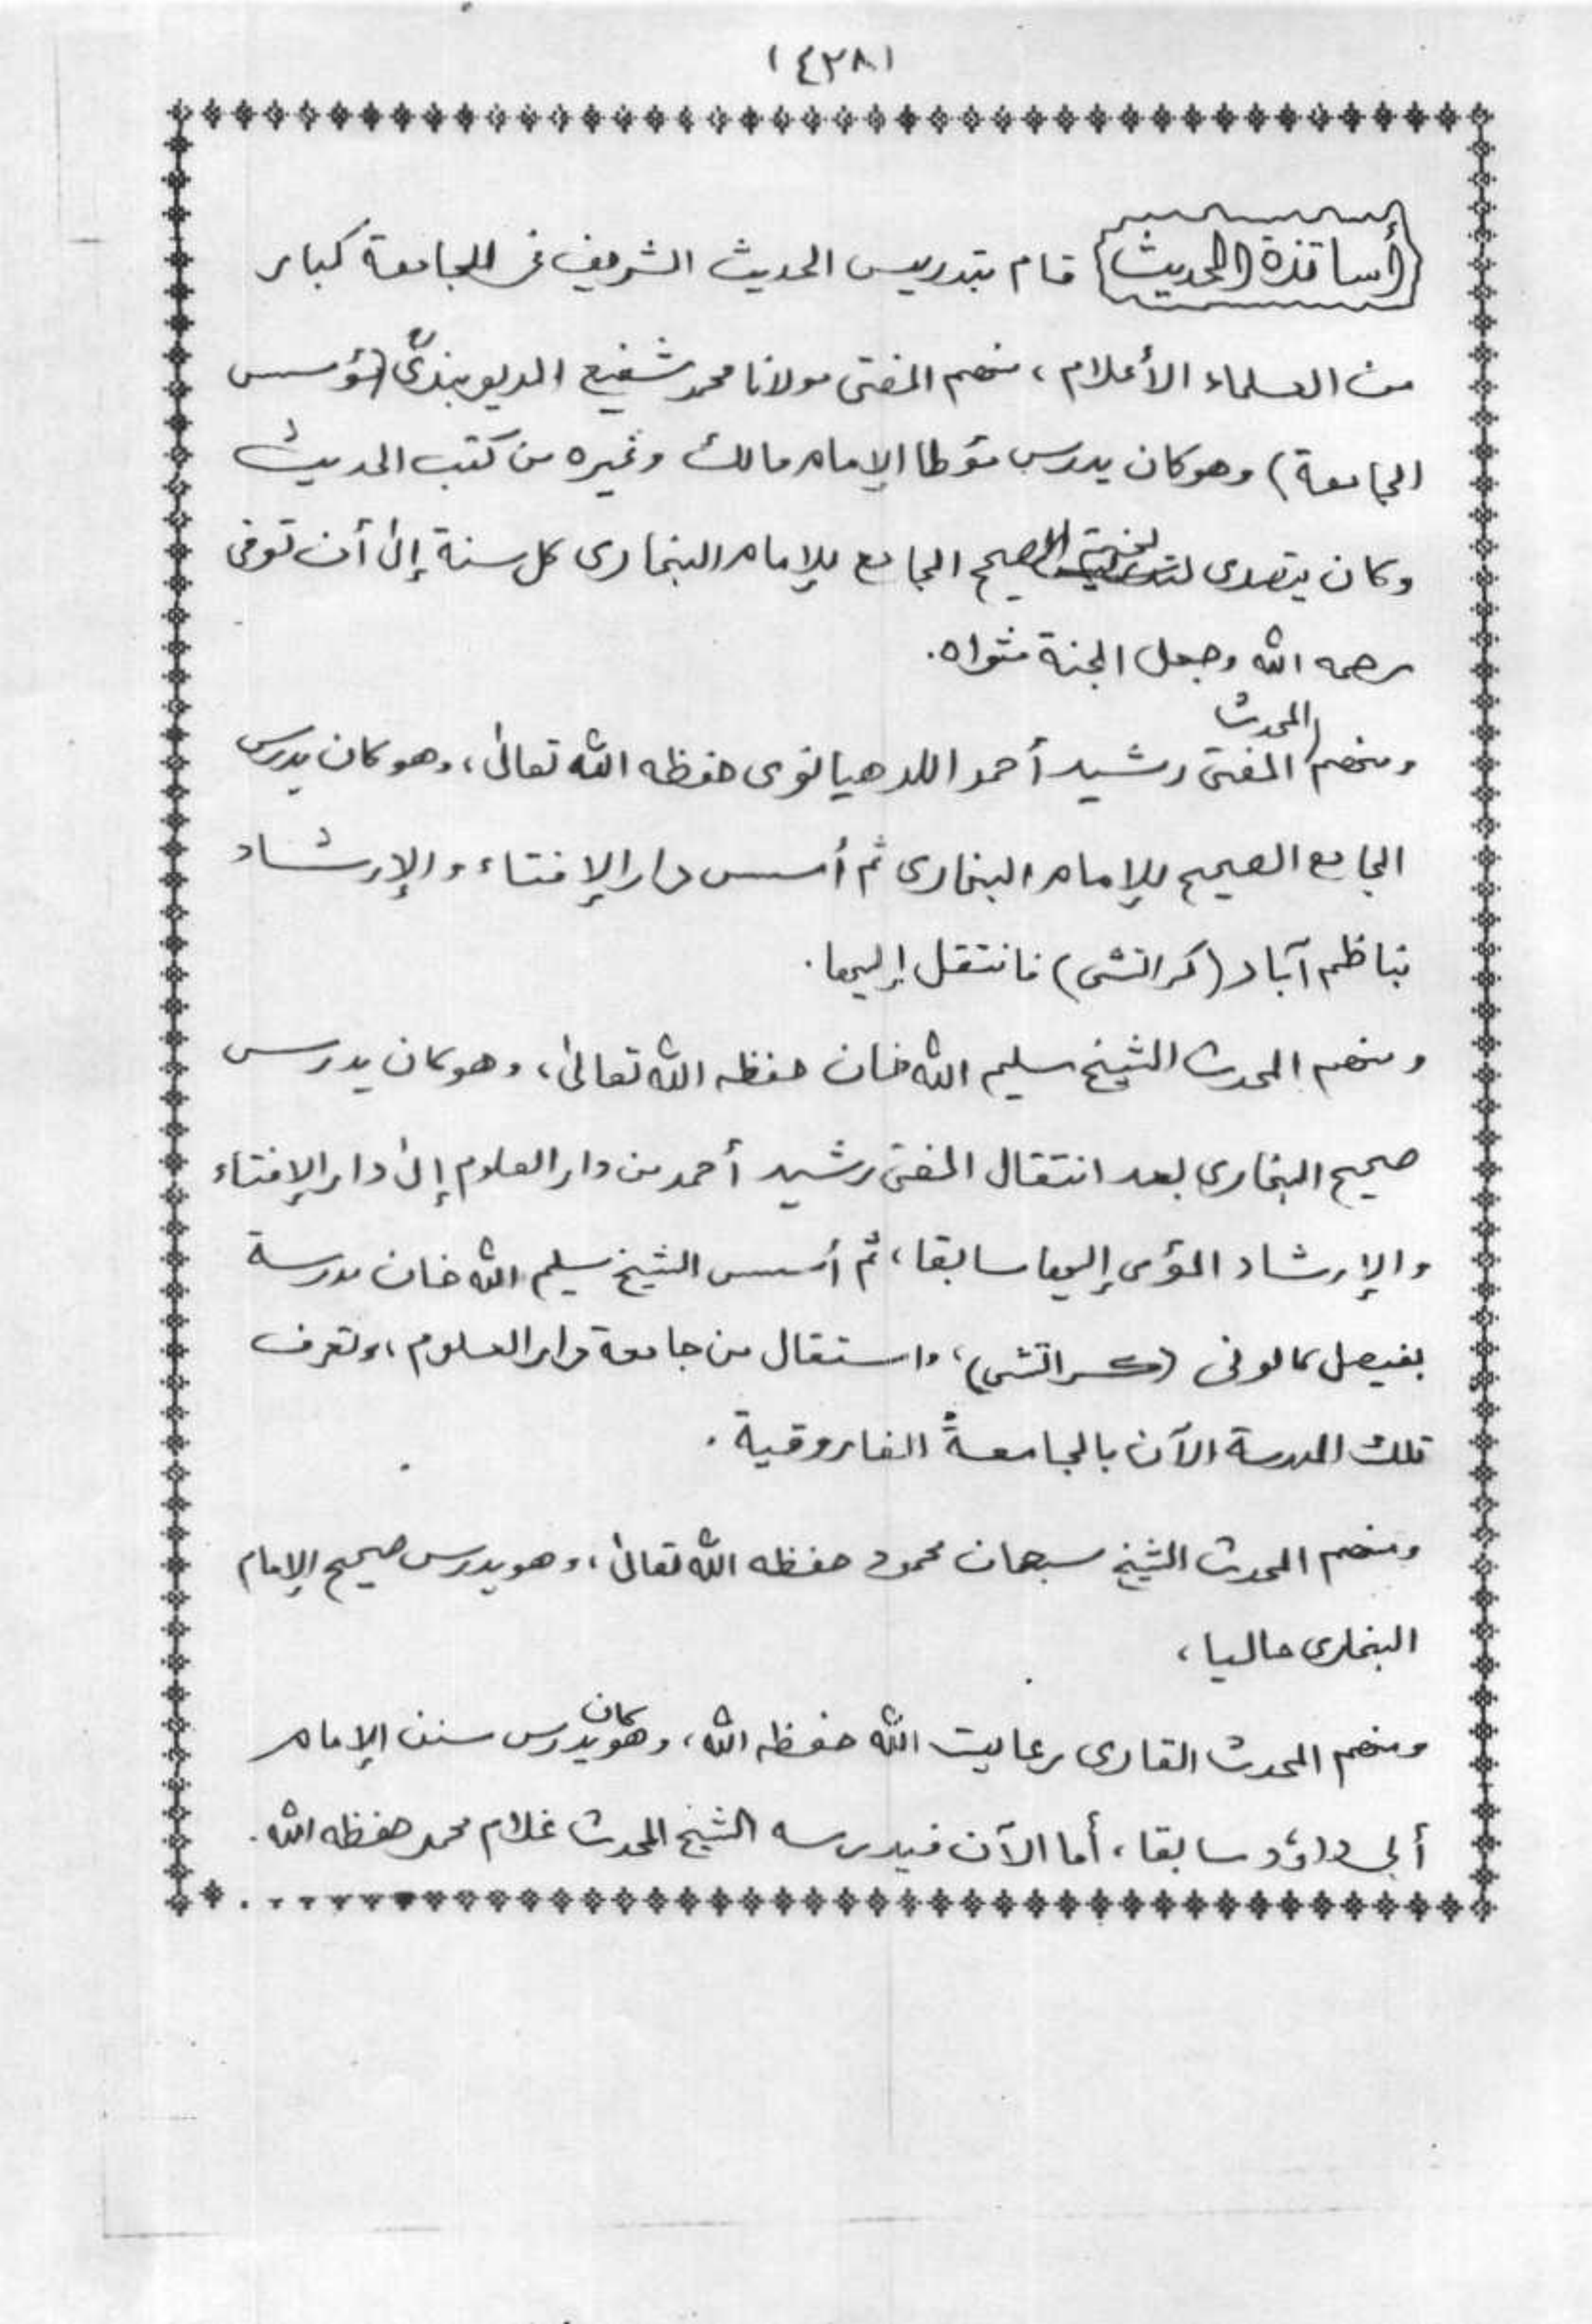 (٤٢٨)
أساتذة الحديث قام بتدريس الحديث الشريف في الجامعة كبار
من العلماء الأعلام، منهم المفتى مولانا محمد شفيع الديوبندىؒ (مؤسس
الجامعة) وهو كان يدرس مؤطا الإمام مالك وغيره من كتب الحديث
وكان يتصدى لختم الصحيح الجامع للإمام البخارى كل سنة إلى أن توفى
رحمه الله وجعل الجنة مثواه.
ومنهم المحدث المفتى رشيد أحمد اللدهيانوى حفظه الله تعالى، وهو كان يدرس
الجامع الصحيح للإمام البخارى ثم أسس دار الإفتاء والإرشاد
بناظم آباد (كراتشى) فانتقل إليها.
ومنهم المحدث الشيخ سليم الله خان حفظه الله تعالى، وهو كان يدرس
صحيح البخارى بعد انتقال المفتى رشيد أحمد من دار العلوم إلى دار الإفتاء
والإرشاد المؤمى إليها سابقا، ثم أسس الشيخ سليم الله خان مدرسة
بفيصل كالونى (كراتشى)، واستقال من جامعة دار العلوم، وتعرف
تلك المدرسة الآن بالجامعة الفاروقية.
ومنهم المحدث الشيخ سبحان محمود حفظه الله تعالى، وهو يدرس صحيح الإمام
البخارى حاليا،
ومنهم المحدث القارى رعايت الله حفظه الله، وهو كان يدرس سنن الإمام
أبى داؤد سابقا، أما الآن فيدرسه الشيخ المحدث غلام محمد حفظه الله.